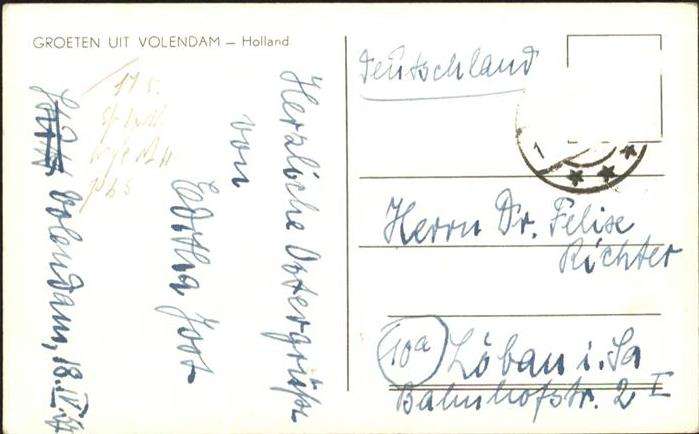 GROETEN UIT VOLENDAM — Holland
Herzliche Ostergrüße
von
Editha Jost
Volendam, 18. IV.
Deutschland
1
Herrn Dr. Felix
Richter
10a Löbau i. Sa
Bahnhofstr. 2 I